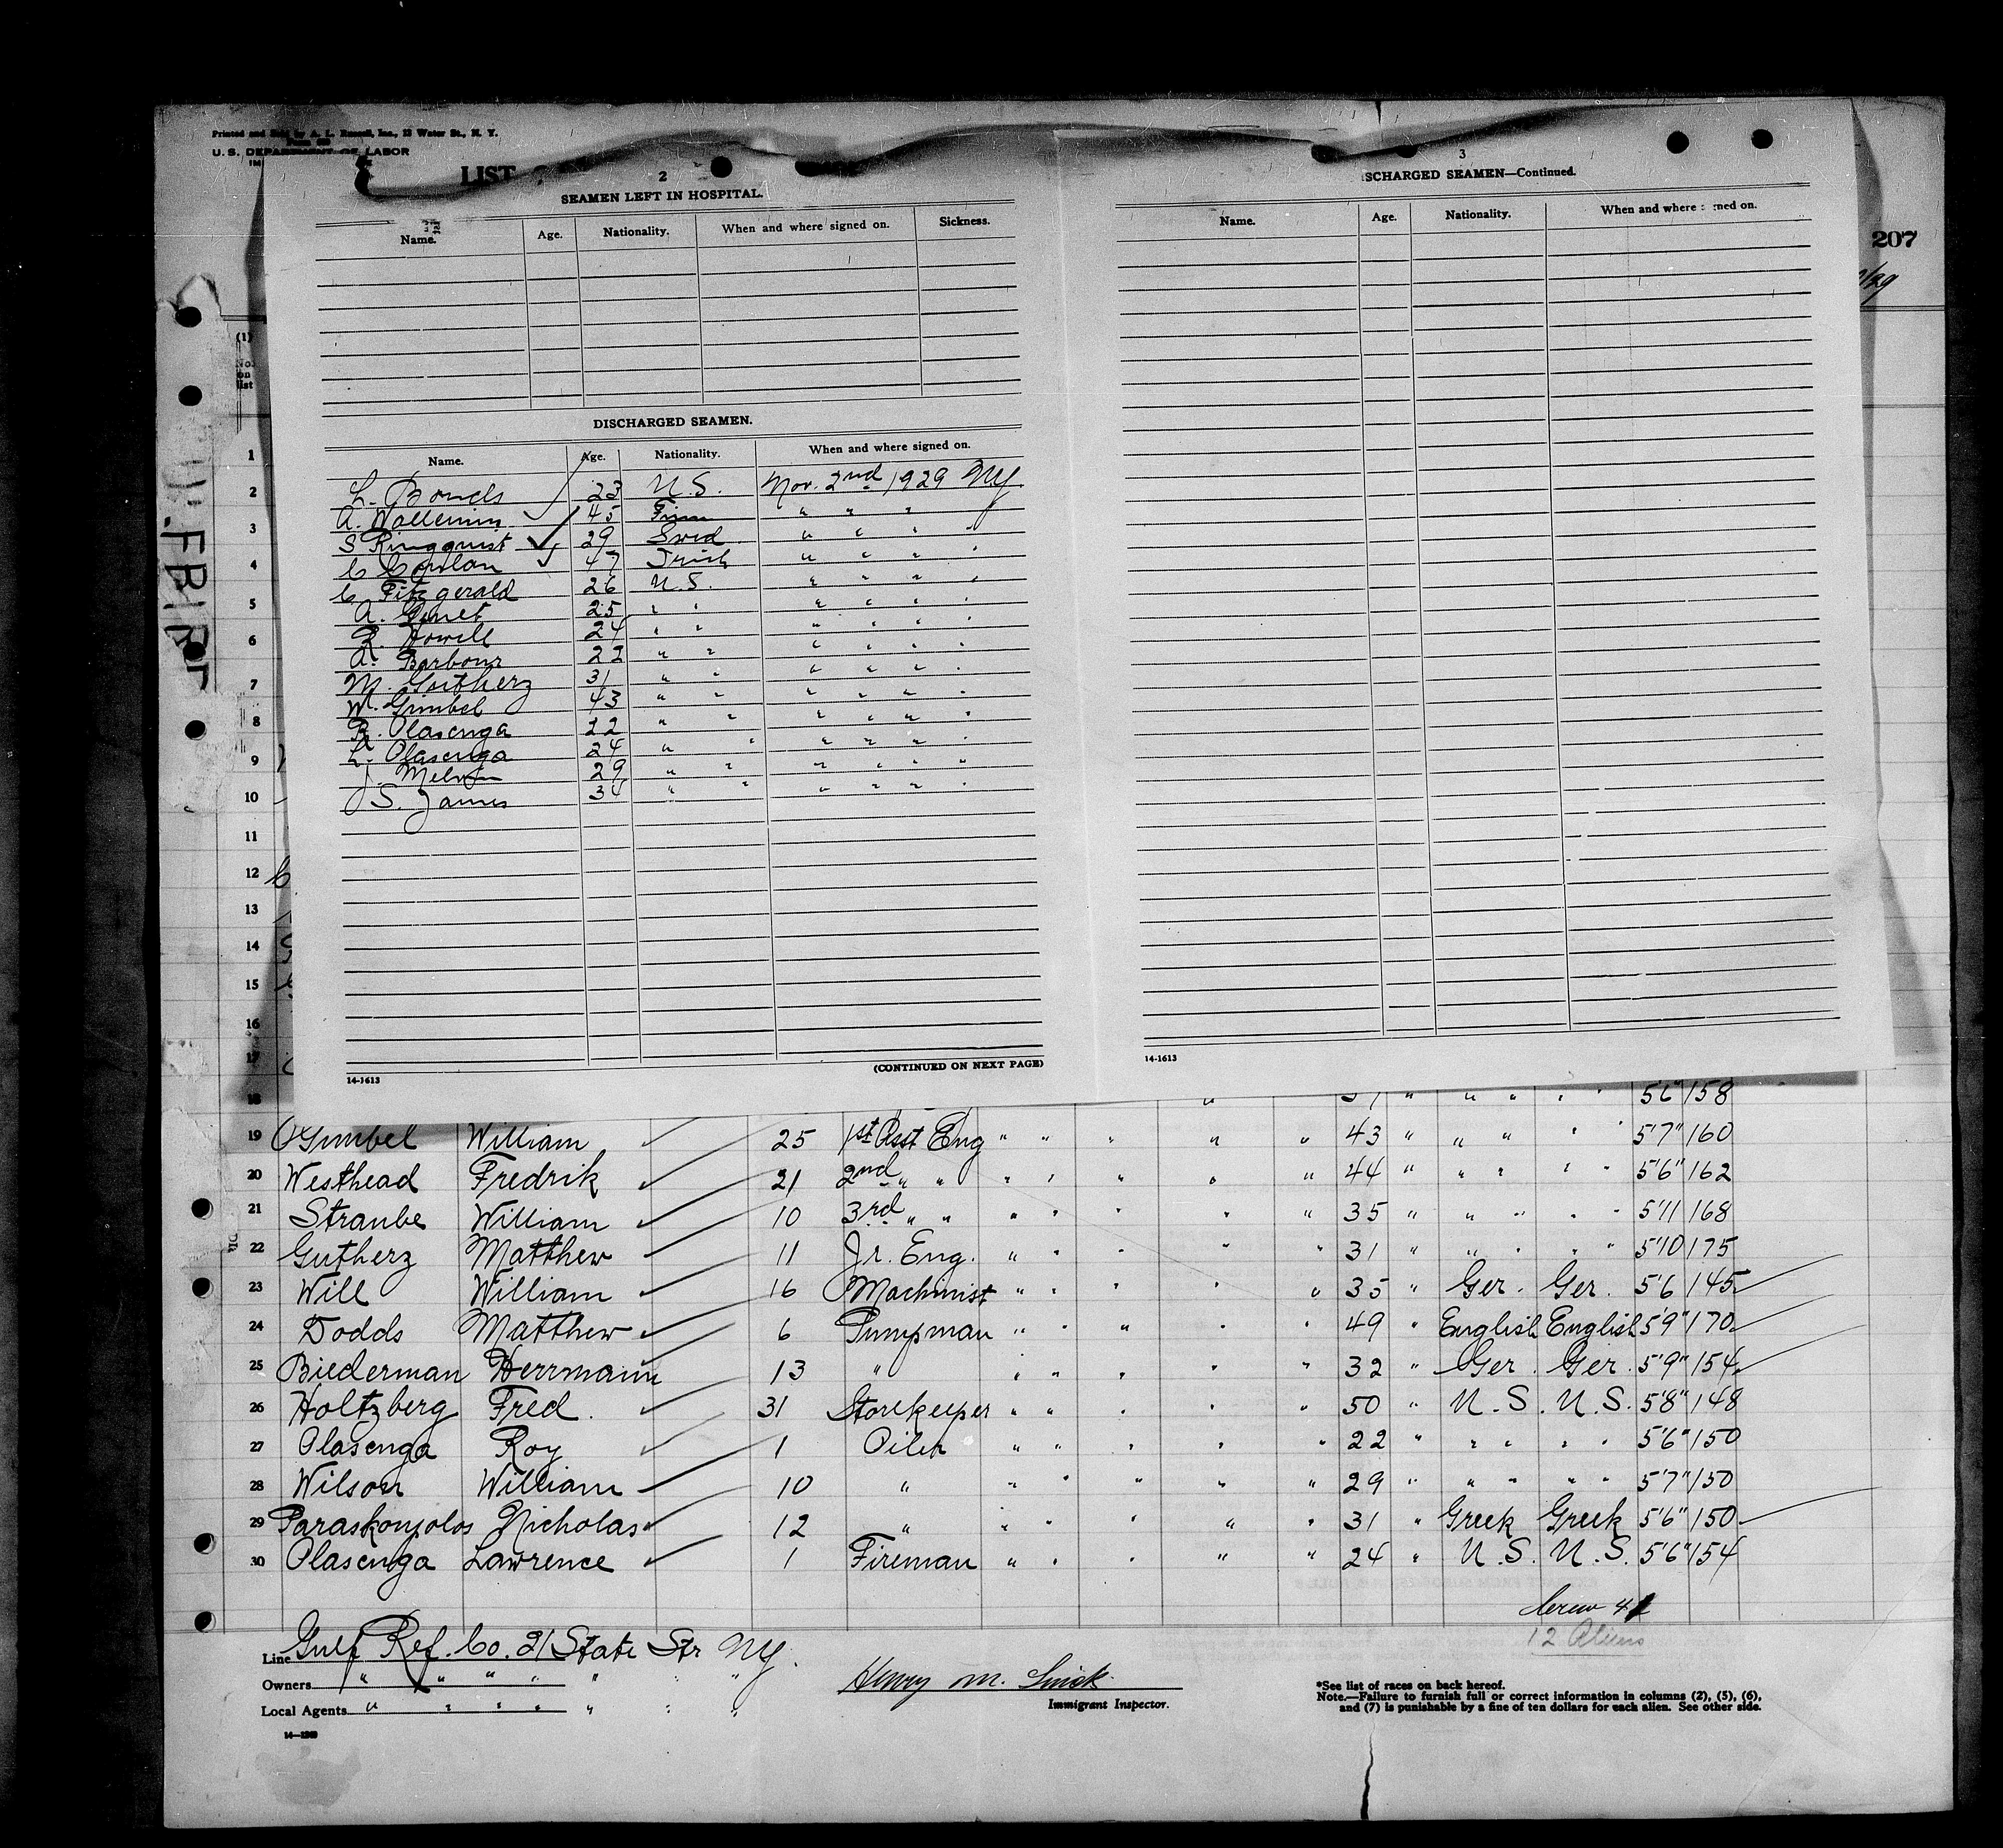 Printed and Sold by A. L. Russell, Inc., 13 Water St., N. Y.
U. S. DEPARTMENT OF LABOR
LIST
207
2
SEAMEN LEFT IN HOSPITAL.
Name. Age. Nationality. When and where signed on. Sickness.
DISCHARGED SEAMEN.
Name. Age. Nationality. When and where signed on.
L. Bonds 23 U.S. Nov. 2nd 1929 NY.
A. Wallenin 45 Finn " " "
S Ringquist 29 Swed " " " "
C Conlan 47 Irish " " " "
C Fitzgerald 26 U.S. " " " "
A. 25 " " " " " "
R. Howell 24 " " " " " "
A. Barbour 22 " " " " " "
M. Gutherz 31 " " " " " "
W. Gimbel 43 " " " " " "
R. Olasenga 22 " " " " " "
L. Olasenga 24 " " " " " "
J. Melvin 29 " " " " " "
S. James 34 " " " " " "
(CONTINUED ON NEXT PAGE)
14-1613
3
ISCHARGED SEAMEN—Continued.
Name. Age. Nationality. When and where signed on.
14-1613
(1)
No. on list
1
2
3
4
5
6
7
8
9
10
11
12
13
14
15
16
17
18 " " " " " " 5'6" 158
19 Gimbel William 25 1st Asst Eng " " " " " 43 " " " " " 5'7" 160
20 Westhead Fredrik 21 2nd " " " " " " " 44 " " " " " 5'6" 162
21 Straube William 10 3rd " " " " " " " 35 " " " " " 5'11 168
22 Gutherz Matthew 11 Jr. Eng. " " " " " 31 " " " " " 5'10 175
23 Will William 16 Machinist " " " " " 35 " Ger. Ger. 5'6 145
24 Dodds Matthew 6 Pumpman " " " " " 49 " English English 5'9" 170
25 Biederman Herrmann 13 " " " " " " 32 " Ger. Ger. 5'9" 154
26 Holtzberg Fred. 31 Storekeeper " " " " " 50 " U.S. U.S. 5'8" 148
27 Olasenga Roy 1 Oiler " " " " " 22 " " " " " 5'6" 150
28 Wilson William 10 " " " " " " 29 " " " " " 5'7" 150
29 Paraskoupolos Nicholas 12 " " " " " " 31 " Greek Greek 5'6" 150
30 Olasenga Lawrence 1 Fireman " " " " " 24 " U.S. U.S. 5'6" 154
Crew
12 Aliens
Line Gulf Ref. Co. 21 State Str NY.
Owners " " " " " " "
Local Agents " " " " " " "
Henry M.
Immigrant Inspector.
*See list of races on back hereof.
Note.—Failure to furnish full or correct information in columns (2), (5), (6),
and (7) is punishable by a fine of ten dollars for each alien. See other side.